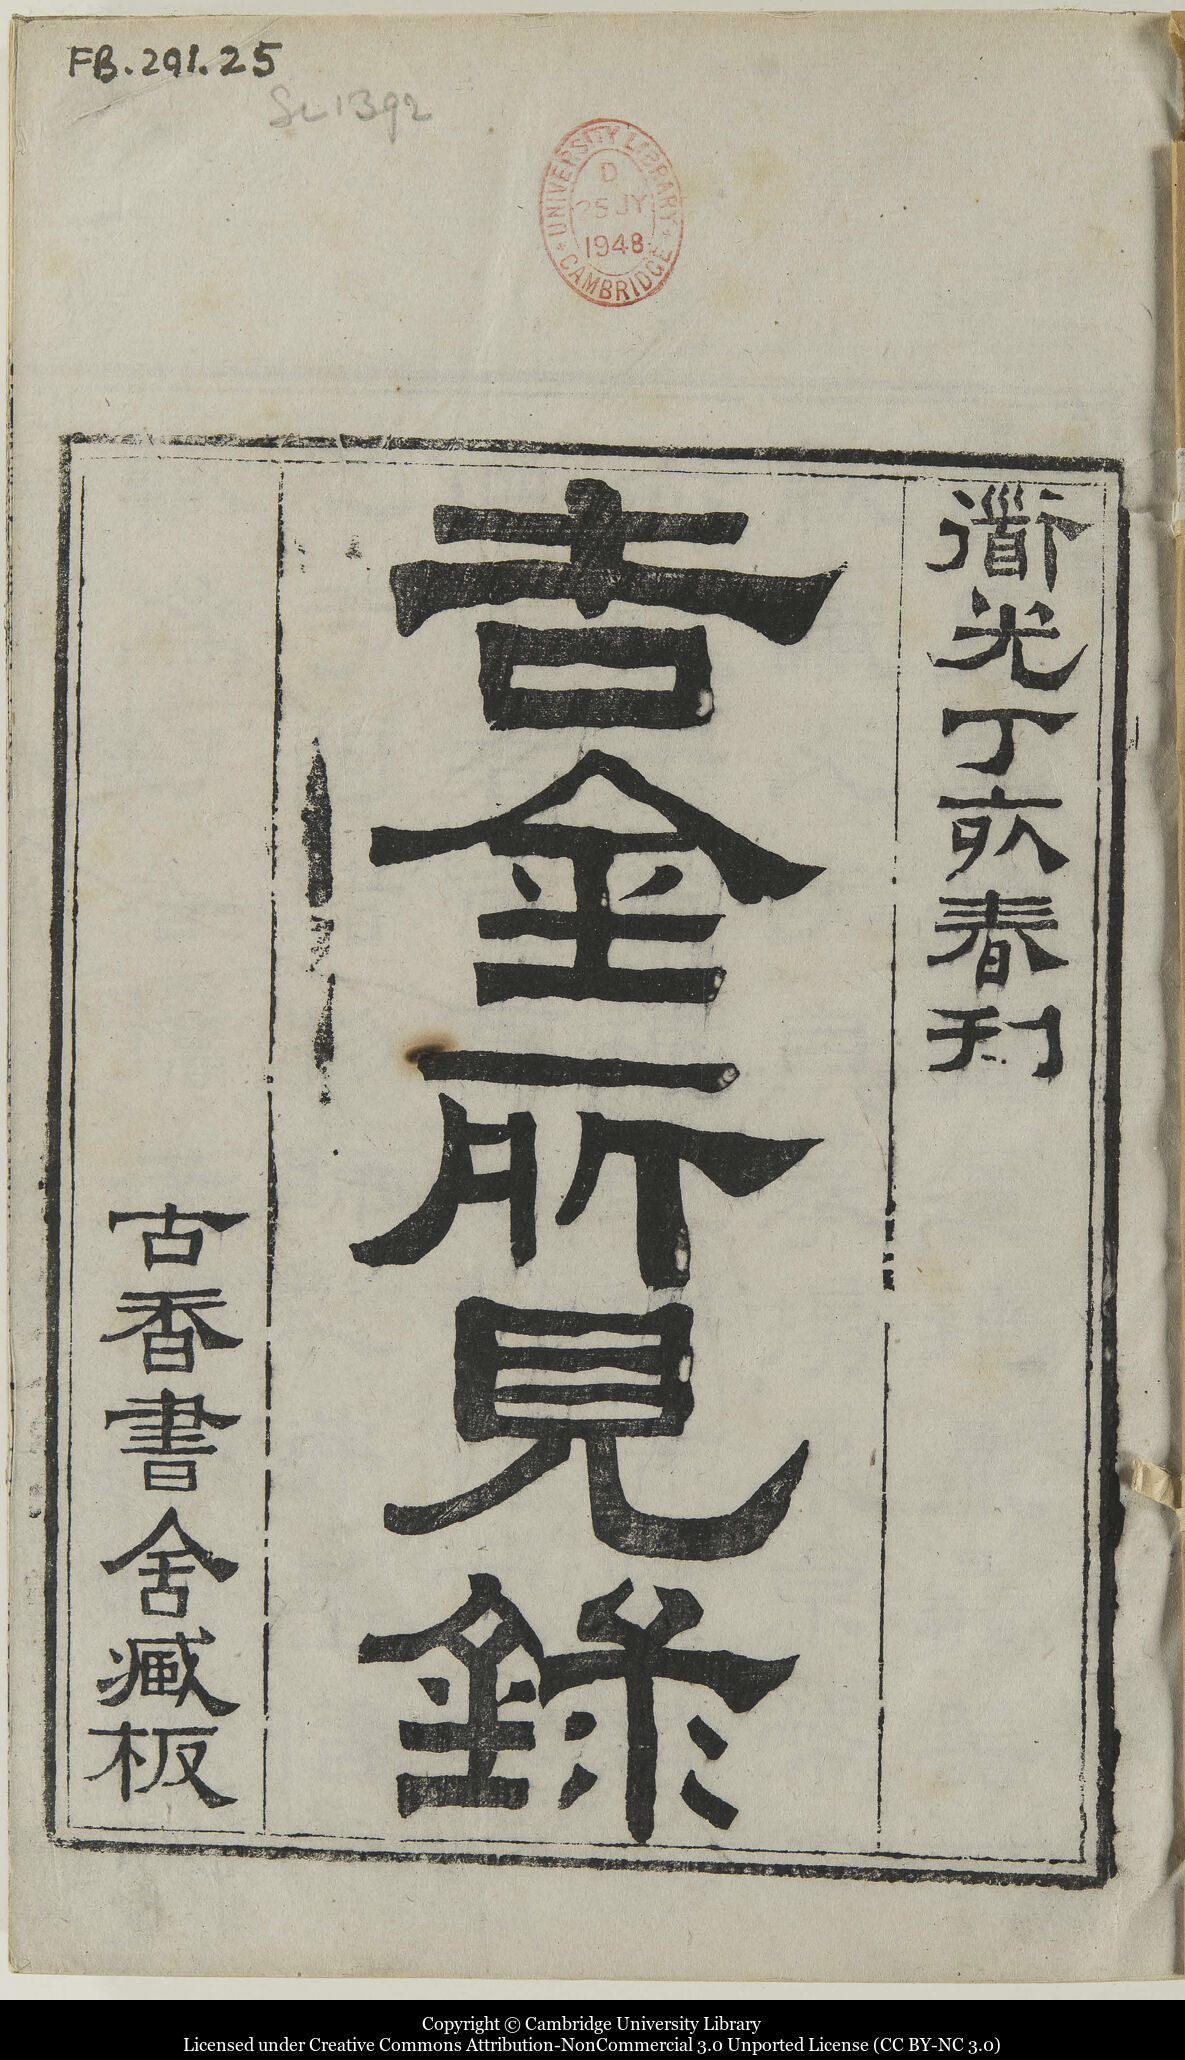 FB.291.25
Se 1392
UNIVERSITY LIBRARY
D
25 JY
1948
CAMBRIDGE
道光丁亥春刊
吉金所見錄
古香書舍藏板
Copyright © Cambridge University Library
Licensed under Creative Commons Attribution-NonCommercial 3.0 Unported License (CC BY-NC 3.0)